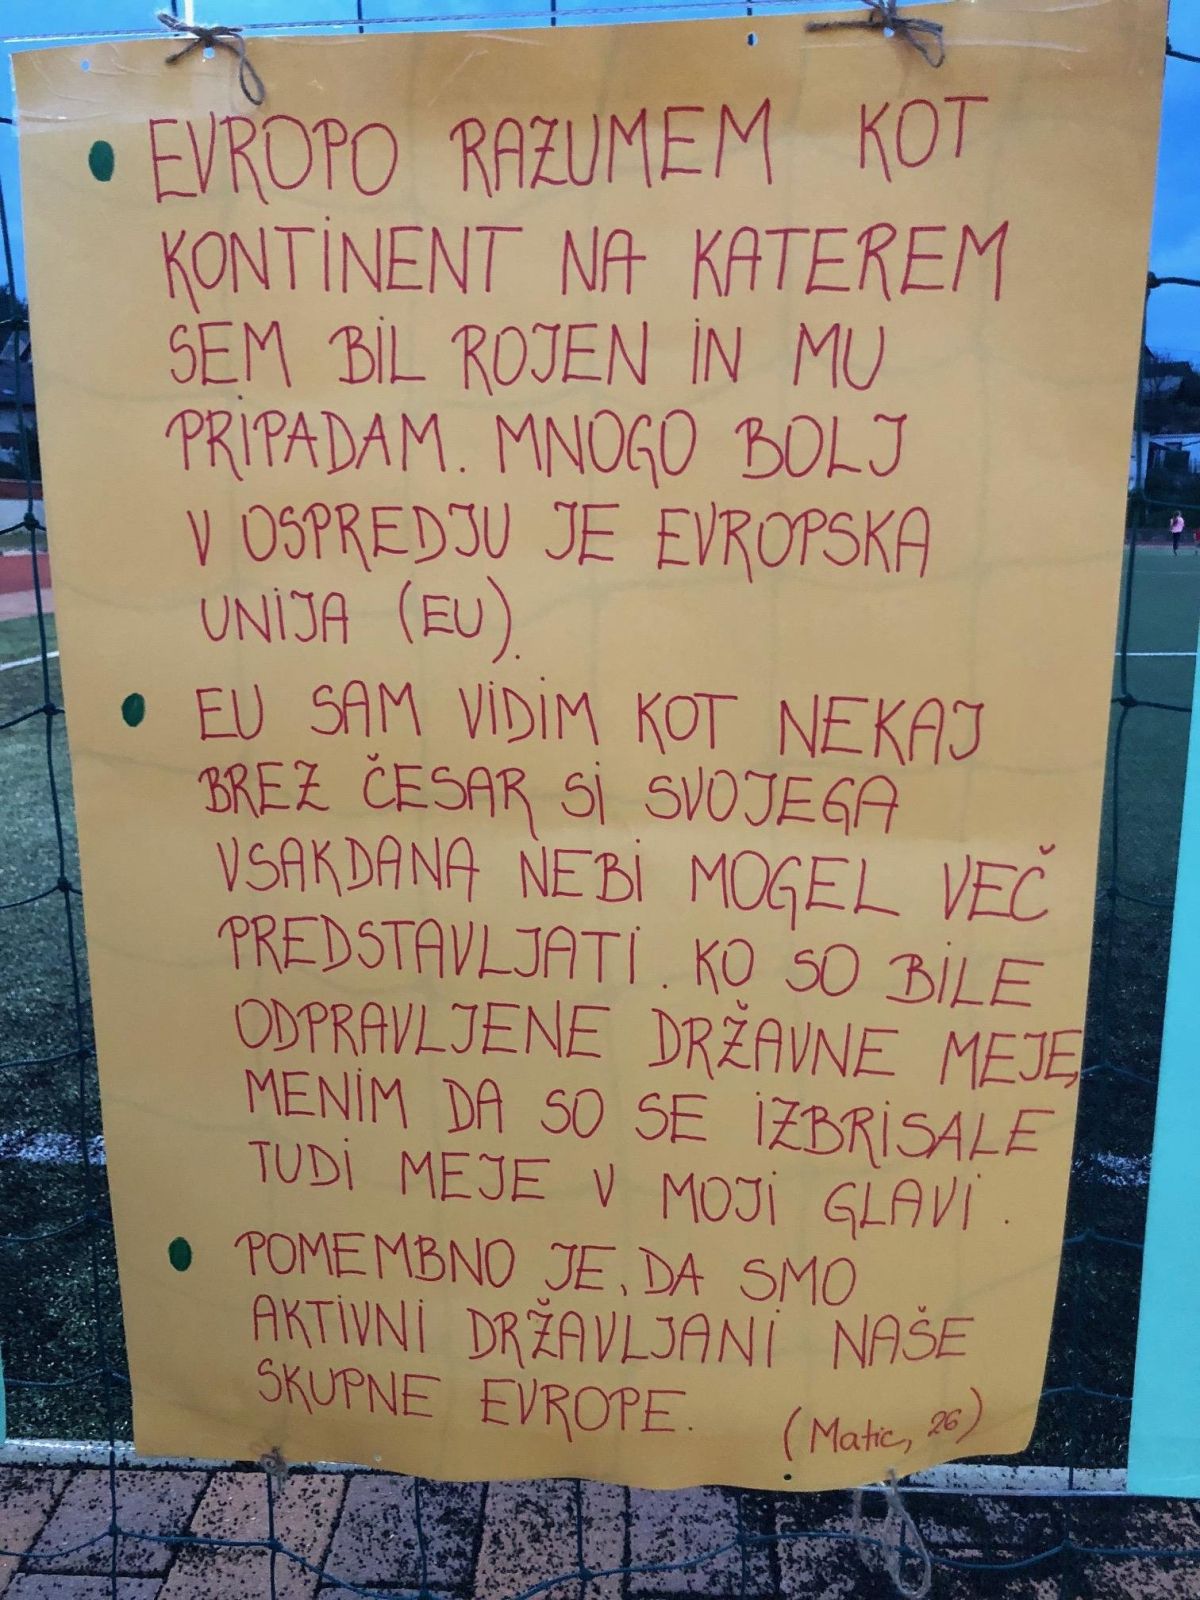 EVROPO RAZUMEM KOT
KONTINENT NA KATEREM
SEM BIL ROJEN IN MU
PRIPADAM. MNOGO BOLJ
V OSPREDJU JE EVROPSKA
UNIJA (EU).
EU SAM VIDIM KOT NEKAJ
BREZ ČESAR SI SVOJEGA
VSAKDANA NEBI MOGEL VEČ
PREDSTAVLJATI. KO SO BILE
ODPRAVLJENE DRŽAVNE MEJE,
MENIM DA SO SE IZBRISALE
TUDI MEJE V MOJI GLAVI.
POMEMBNO JE, DA SMO
AKTIVNI DRŽAVLJANI NAŠE
SKUPNE EVROPE.
(Matic, 26)